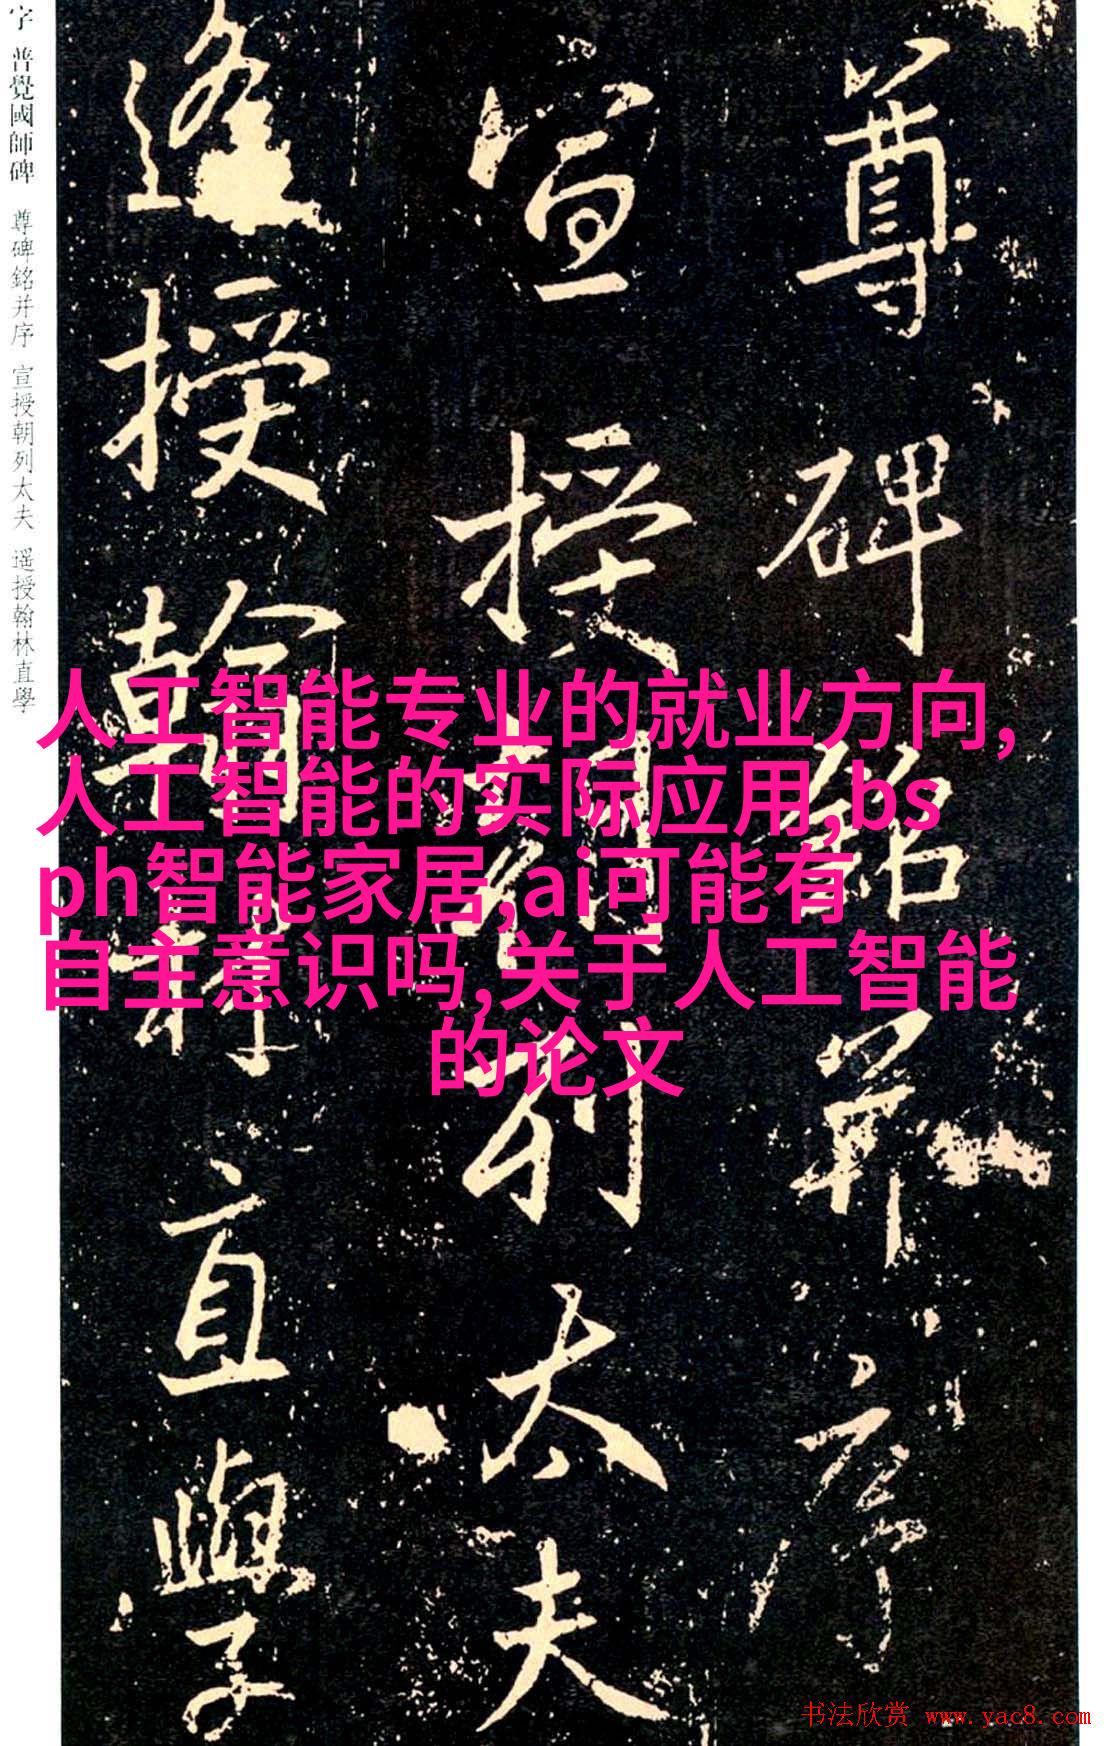 字 普覺國師碑 尊碑銘并序 宣授朝列太夫 遥授翰林直學
尊碑銘并序
宣授朝列太夫
遥授翰林直學
人工智能专业的就业方向,
人工智能的实际应用,bs
ph智能家居,ai可能有
自主意识吗,关于人工智能
的论文
书法欣赏 www.yac8.com